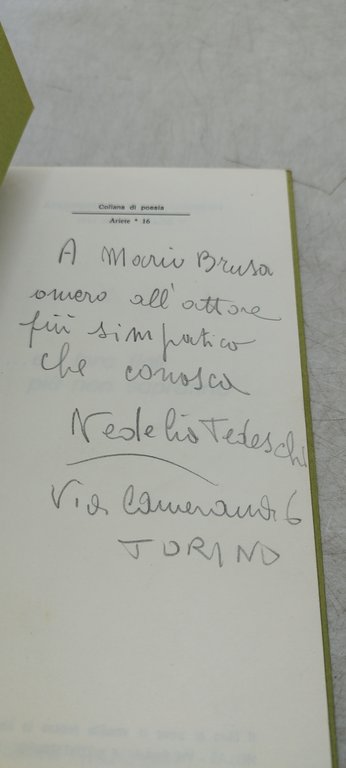 Collana di poesia
Ariete * 16
A Mario Brusa
omero all'attore
più simpatico
che conosca
Nedelio Tedeschi
Via Camerana 6
TORINO